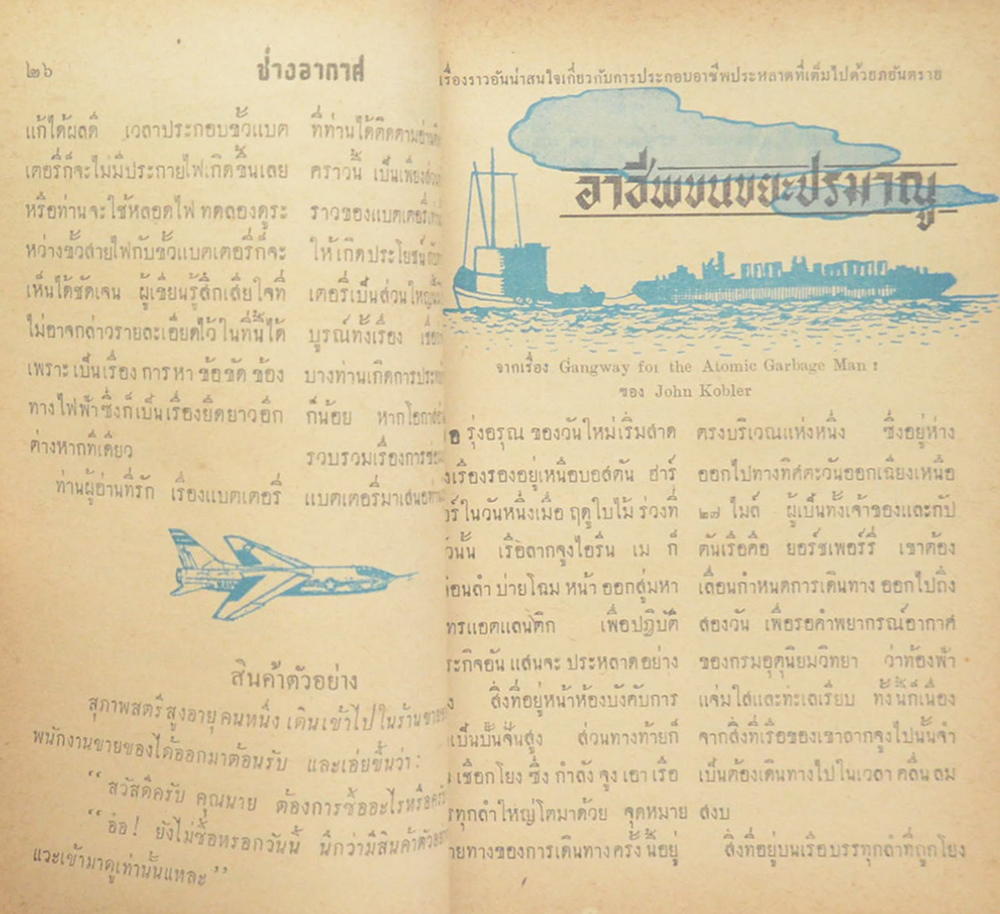 ๒๖
ช่างอากาศ
แก้ได้ผลดี เวลาประกอบขั้วแบต
เตอรี่ก็จะไม่มีประกายไฟเกิดขึ้นเลย
หรือท่านจะใช้หลอดไฟ ทดลองดูระ
หว่างขั้วสายไฟกับขั้วแบตเตอรี่ก็จะ
เห็นได้ชัดเจน ผู้เขียนรู้สึกเสียใจที่
ไม่อาจกล่าวรายละเอียดไว้ ในที่นี้ได้
เพราะ เป็นเรื่อง การ หา ข้อขัด ข้อง
ทางไฟฟ้า ซึ่งก็เป็นเรื่องยืดยาวอีก
ต่างหากทีเดียว
ท่านผู้อ่านที่รัก เรื่องแบตเตอรี่
ที่ท่านได้ติดตามอ่าน
คราวนี้ เป็นเพียง
ราวของแบตเตอรี่
ให้เกิดประโยชน์
เตอรี่เป็นส่วนใหญ่
บูรณ์ทั้งเรื่อง
บางท่านเกิดการ
ก็น้อย หากโอกาส
รวบรวมเรื่องการ
แบตเตอรี่มาเสนอ
สินค้าตัวอย่าง
สุภาพสตรี สูงอายุ คนหนึ่ง เดินเข้าไป ในร้าน
พนักงานขายของได้ออกมาต้อนรับ และเอ่ยขึ้นว่า :
“ สวัสดีครับ คุณนาย ต้องการซื้ออะไรหรือครับ
“ อ๋อ ! ยังไม่ซื้อหรอกวันนี้ นึกว่ามีสินค้าตัวอย่าง
แวะเข้ามาดูเท่านั้นแหละ ”
เรื่องราวอันน่าสนใจเกี่ยวกับการประกอบอาชีพประหลาดที่เต็มไปด้วยภยันตราย
อาชีพขนขยะปรมาณู
จากเรื่อง Gangway for the Atomic Garbage Man !
ของ John Kobler
รุ่งอรุณ ของวันใหม่เริ่มสาด
เรืองรองอยู่เหนือบอสตัน ฮาร์
ในวันหนึ่งเมื่อ ฤดูใบไม้ ร่วงที่
นั้น เรือลากจูงไอรีน เม ก็
ลำ บ่ายโฉม หน้า ออกสู่มหา
แอตแลนติก เพื่อปฏิบัติ
กิจอัน แสนจะ ประหลาดอย่าง
สิ่งที่อยู่หน้าห้องบังคับการ
เป็นปั้นจั่นสูง ส่วนทางท้ายก็
เชือกโยง ซึ่ง กำลัง จูง เอา เรือ
ทุกลำใหญ่โตมาด้วย จุดหมาย
ทางของการเดินทางครั้ง นี้อยู่
ตรงบริเวณแห่งหนึ่ง ซึ่งอยู่ห่าง
ออกไปทางทิศตะวันออกเฉียงเหนือ
๒๗ ไมล์ ผู้เป็นทั้งเจ้าของและกัป
ตันเรือคือ ยอร์ชเพอร์รี่ เขาต้อง
เลื่อนกำหนดการเดินทาง ออกไปถึง
สองวัน เพื่อรอคำพยากรณ์อากาศ
ของกรมอุตุนิยมวิทยา ว่าท้องฟ้า
แจ่มใสและทะเลเรียบ ทั้งนี้ก็เนื่อง
จากสิ่งที่เรือของเขาลากจูงไปนั้นจำ
เป็นต้องเดินทางไปในเวลา คลื่นลม
สงบ
สิ่งที่อยู่บนเรือบรรทุกลำที่ถูกโยง